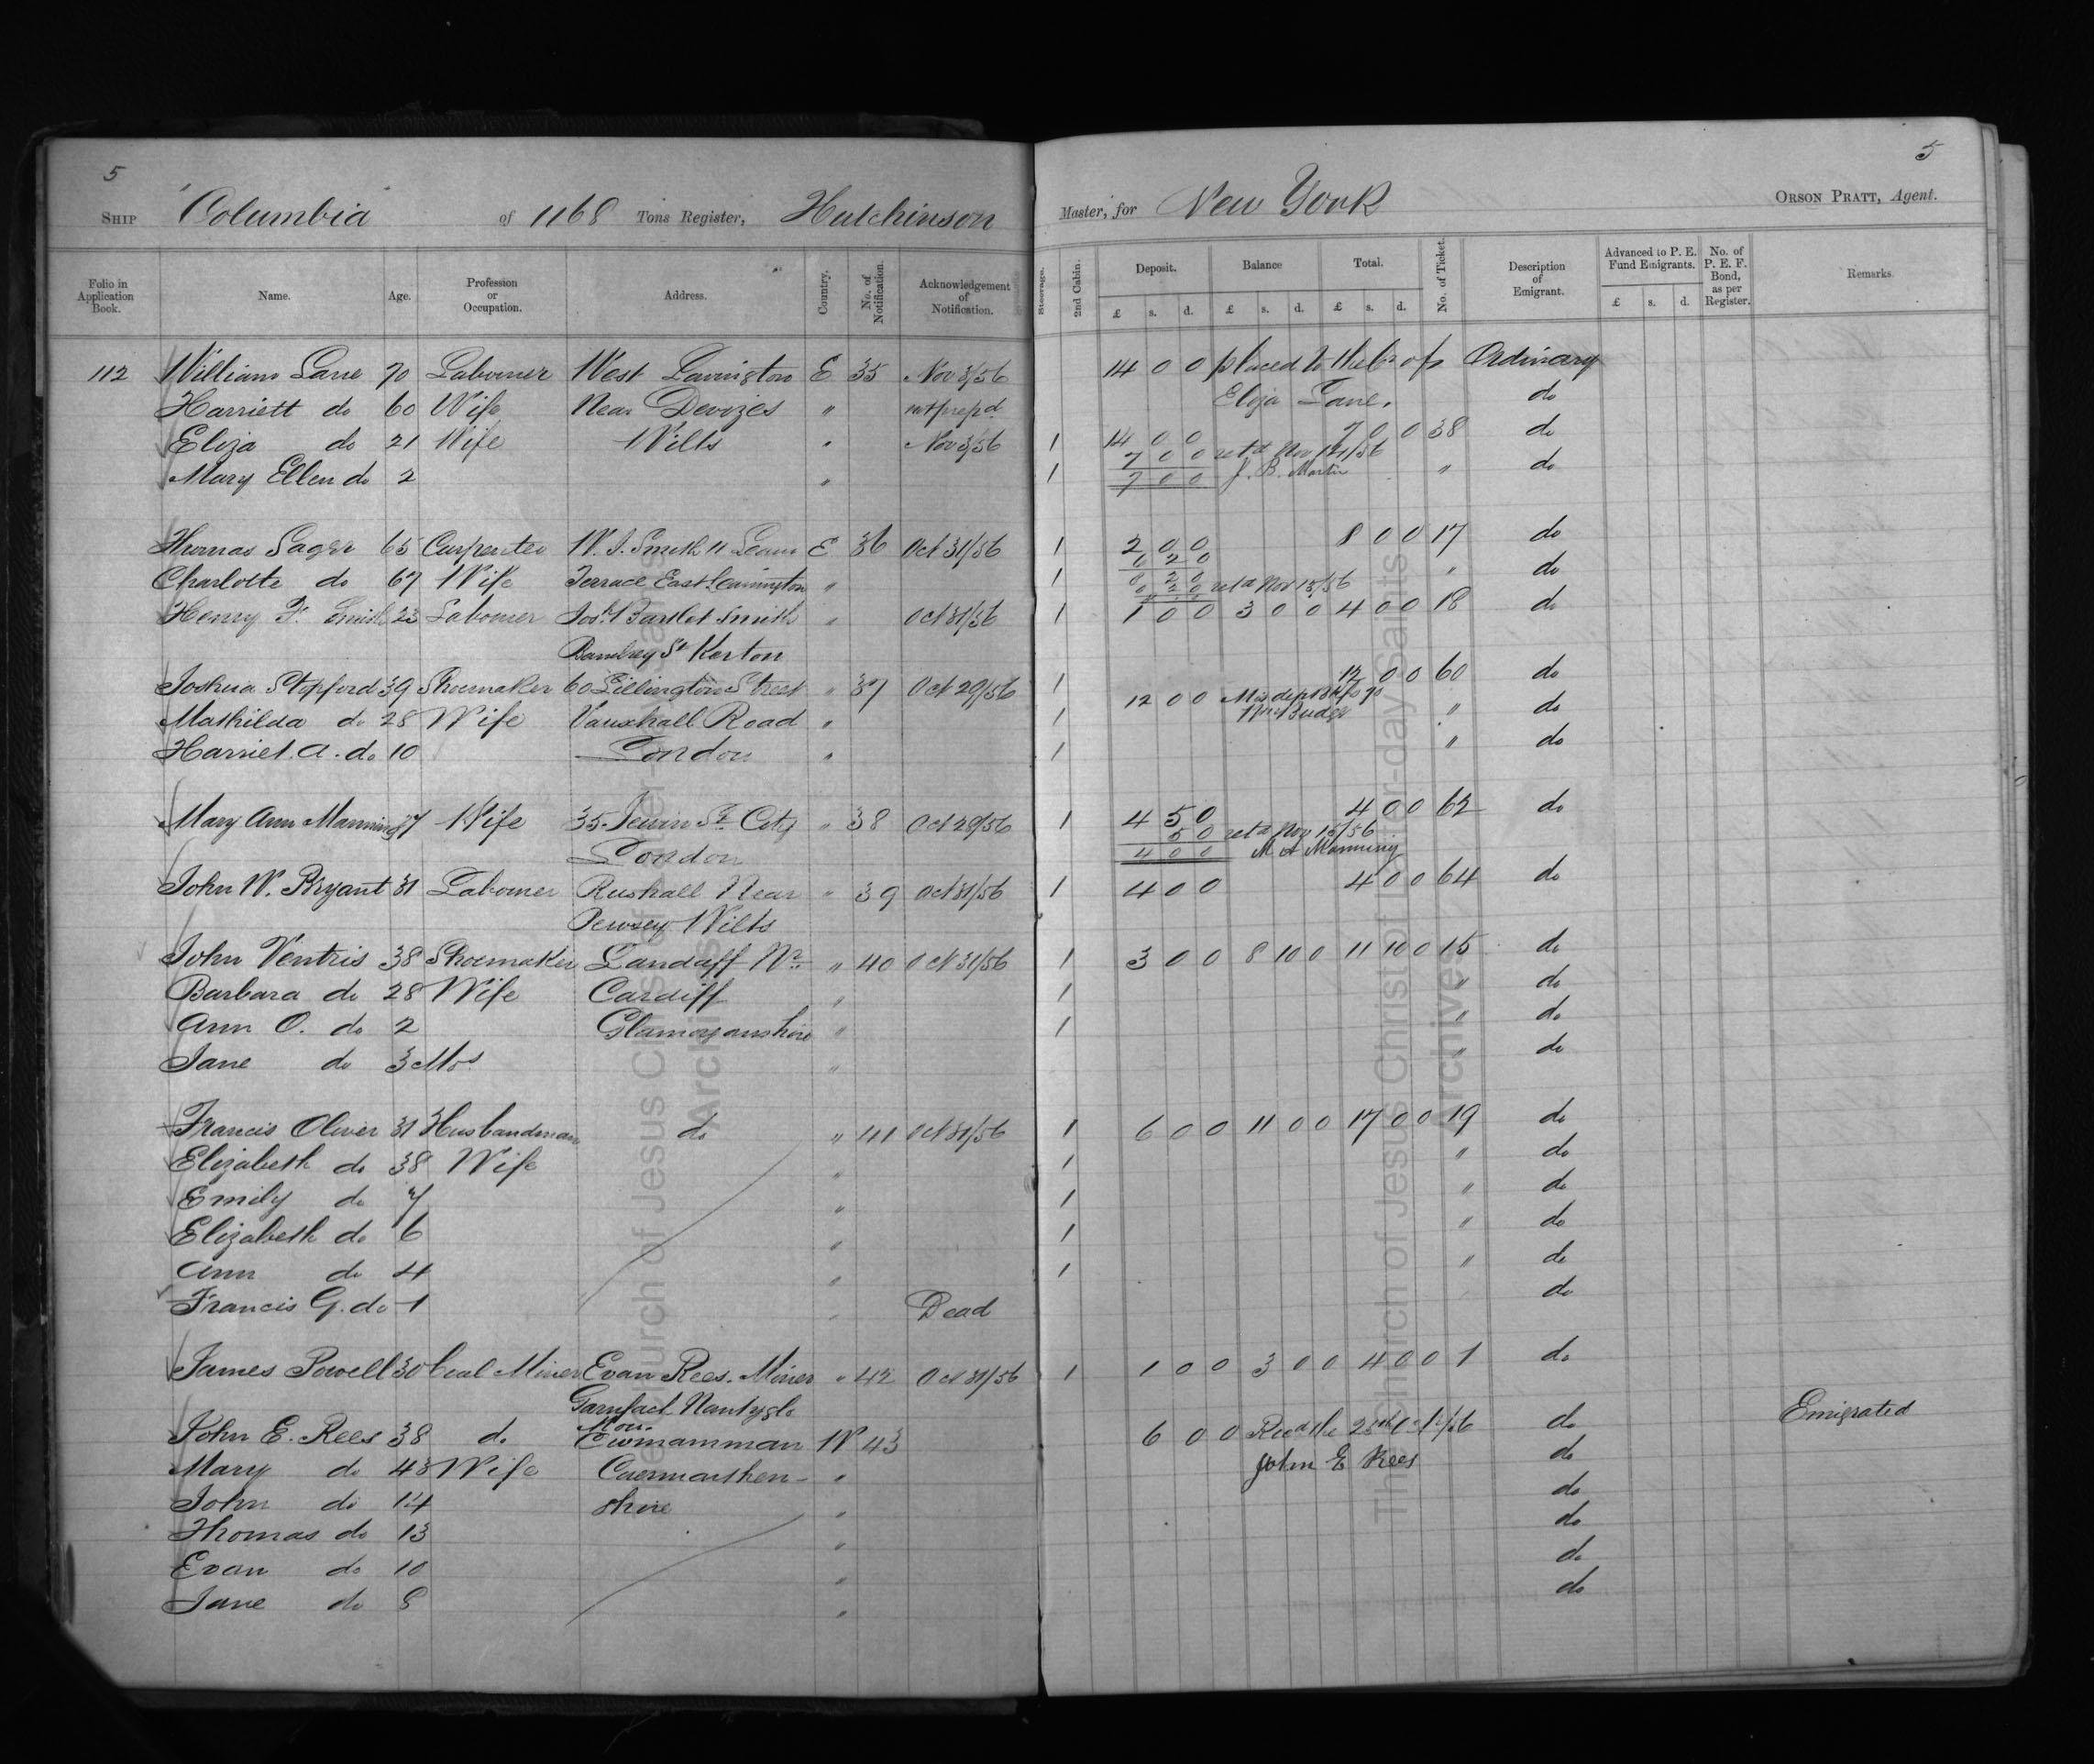 5
5
SHIP Columbia of 1168 Tons Register, Hutchinson Master, for New York ORSON PRATT, Agent.
Folio in Application Book. Name. Age. Profession or Occupation. Address. Country. No. of Notification. Acknowledgement of Notification. Steerage. 2nd Cabin. Deposit. £ s. d. Balance £ s. d. Total. £ s. d. No. of Ticket. Description of Emigrant. Advanced to P. E. Fund Emigrants. £ s. d. No. of P. E. F. Bond, as per Register. Remarks
112 William Lane 70 Labourer West Lavington E 35 Nov 3/56 14 0 0 placed to the Cr of Ordinary
Harriett do 60 Wife Near Devizes " not prepd Eliza Lane. do
Eliza do 21 Wife Wilts " Nov 3/56 1 14 0 0 7 0 0 38 do
7 0 0 retd Nov /56
Mary Ellen do 2 " 1 7 0 0 J. B. Martin " do
Thomas Sager 65 Carpenter W. J. Smith 11 Leam E 36 Oct 31/56 1 2 0 0 8 0 0 17 do
6 2 0
Charlotte do 67 Wife Terrace East Leamington " 1 8 2 0 " do
retd Nov 15/56
Henry F. Smith 23 Labourer Bartlet Smith " Oct 31/56 1 1 0 0 3 0 0 4 0 0 18 do
St Kerton
Joshua Stopford 39 Shoemaker 60 Lillington Street " 37 Oct 29/56 1 12 0 0 12 0 0 60 do
Mathilda do 28 Wife Vauxhall Road " 1 " do
Harriet. A. do 10 London " 1 " do
Mary Ann Manning 37 Wife 35. Jewin St City " 38 Oct 29/56 1 4 5 0 4 0 0 62 do
5 0 retd Nov 15/56
London 4 0 0 M A Manning
John W. Bryant 31 Labourer Rushall Near " 39 Oct 31/56 1 4 0 0 4 0 0 64 do
Pewsey Wilts
John Ventris 38 Shoemaker Landaff Nr " 40 Oct 31/56 1 3 0 0 8 10 0 11 10 0 15 do
Barbara do 28 Wife Cardiff " 1 " do
Ann O. do 2 Glamorganshire " 1 " do
Jane do 3 Mos " " do
Francis Oliver 31 Husbandman do " 41 Oct 31/56 1 6 0 0 11 0 0 17 0 0 19 do
Elizabeth do 38 Wife " 1 " do
Emily do 7 " 1 " do
Elizabeth do 6 " 1 " do
Ann do 4 " 1 " do
Francis G. do 1 " Dead do
James Powell 30 Coal Miner Evan Rees. Miner " 42 Oct 31/56 1 1 0 0 3 0 0 4 0 0 1 do
Nantyglo
Mon.
John E. Rees 38 do Cwmamman W 43 6 0 0 /56 do Emigrated
Mary do 43 Wife Caermarthen- " John E Rees do
John do 14 shire " do
Thomas do 13 " do
Evan do 10 " do
Jane do 8 " do
The Church of Jesus Christ of Latter-day Saints
Archives
The Church of Jesus Christ of Latter-day Saints
Archives